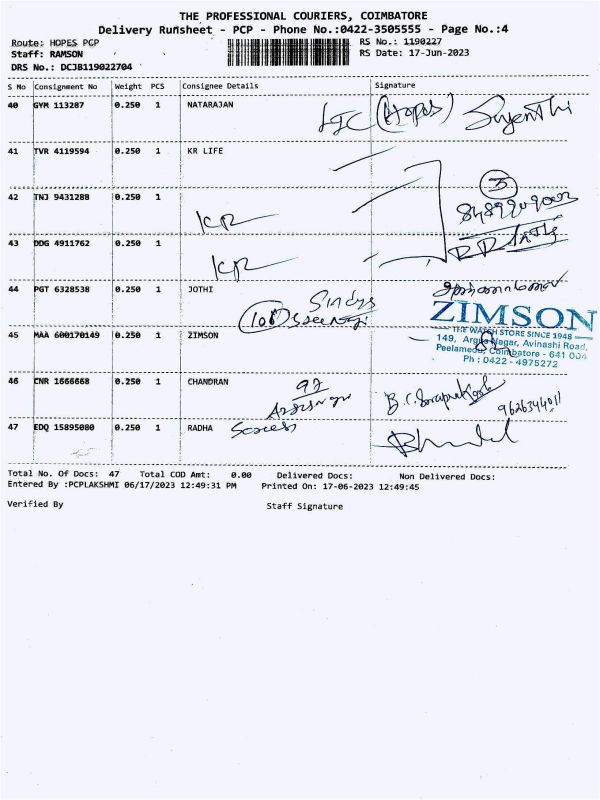 THE PROFESSIONAL COURIERS, COIMBATORE
Delivery Runsheet - PCP - Phone No.:0422-3505555 - Page No.:4
Route: HOPES PCP
RS No.: 1190227
Staff: RAMSON
RS Date: 17-Jun-2023
DRS No.: DCJB119022704
S No Consignment No Weight PCS Consignee Details Signature
40 GYM 113287 0.250 1 NATARAJAN LIC (Hopes)
41 TVR 4119594 0.250 1 KR LIFE
42 TNJ 9431288 0.250 1 KR
3
43 DDG 4911762 0.250 1 KR
44 PGT 6328538 0.250 1 JOTHI
108
45 MAA 600170149 0.250 1 ZIMSON
ZIMSON
THE WATCH STORE SINCE 1948
149, Argus Nagar, Avinashi Road,
Peelamedu, Coimbatore - 641 004
Ph : 0422 - 4975272
46 CNR 1666668 0.250 1 CHANDRAN 97
47 EDQ 15895080 0.250 1 RADHA
Total No. Of Docs: 47 Total COD Amt: 0.00 Delivered Docs: Non Delivered Docs:
Entered By :PCPLAKSHMI 06/17/2023 12:49:31 PM Printed On: 17-06-2023 12:49:45
Verified By Staff Signature